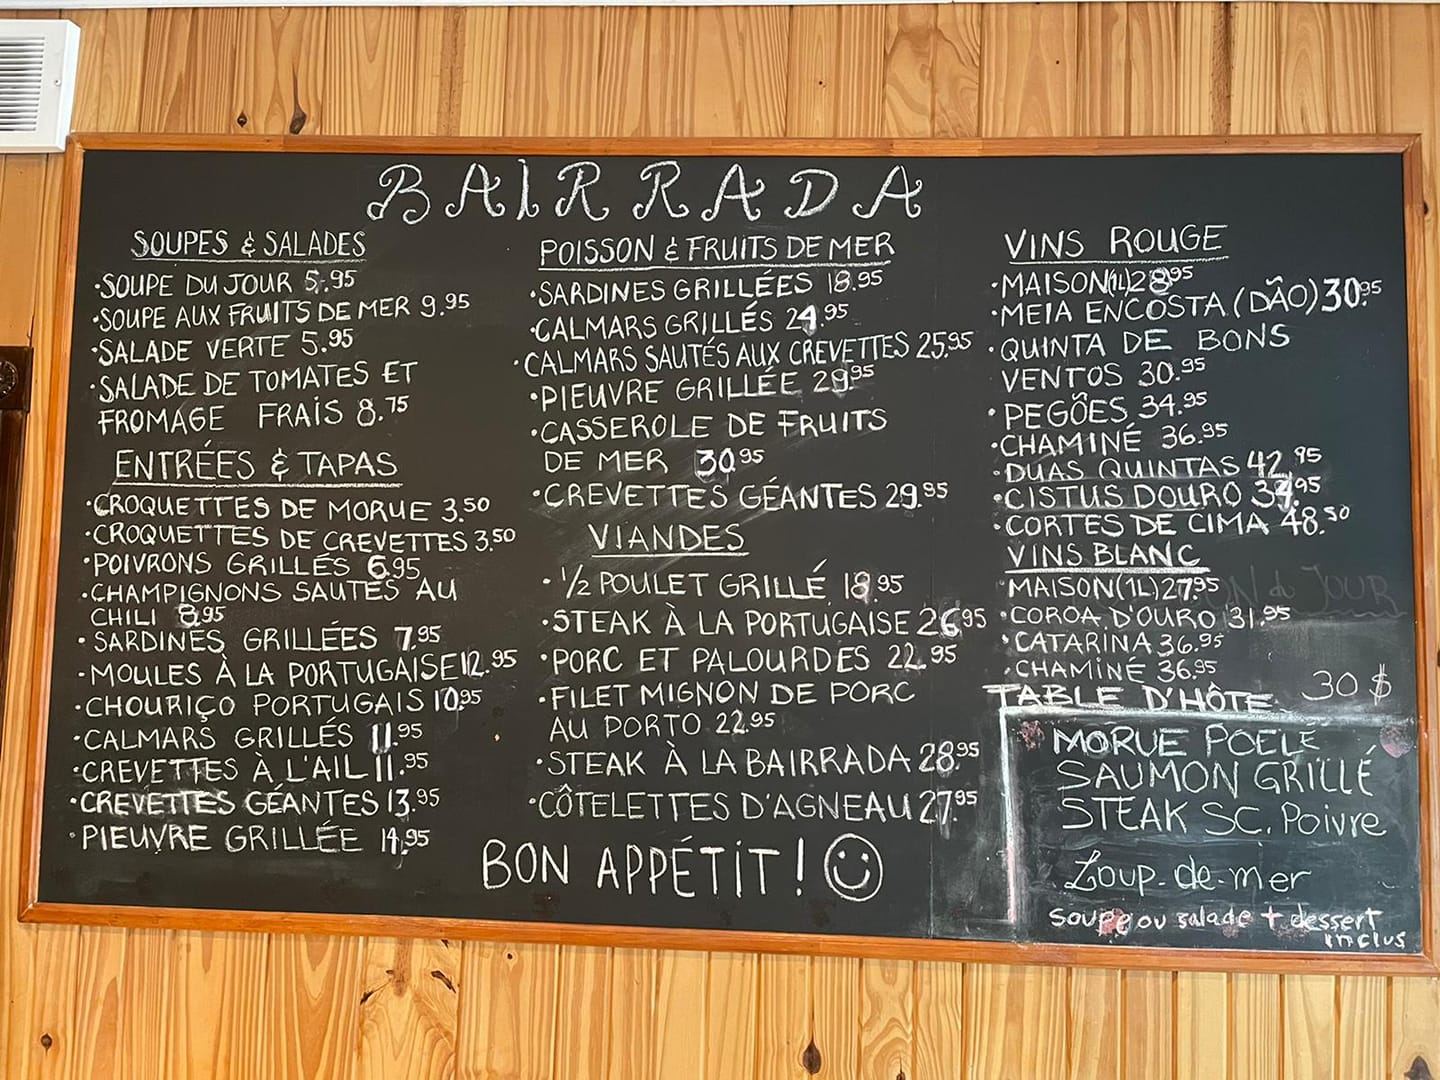 BAIRRADA
SOUPES & SALADES
•SOUPE DU JOUR 5.95
•SOUPE AUX FRUITS DE MER 9.95
•SALADE VERTE 5.95
•SALADE DE TOMATES ET
FROMAGE FRAIS 8.75
ENTRÉES & TAPAS
•CROQUETTES DE MORUE 3.50
•CROQUETTES DE CREVETTES 3.50
•POIVRONS GRILLÉS 6.95
•CHAMPIGNONS SAUTÉS AU
CHILI 8.95
•SARDINES GRILLÉES 7.95
•MOULES À LA PORTUGAISE 12.95
•CHOURIÇO PORTUGAIS 10.95
•CALMARS GRILLÉS 11.95
•CREVETTES À L'AIL 11.95
•CREVETTES GÉANTES 13.95
•PIEUVRE GRILLÉE 14.95
POISSON & FRUITS DE MER
•SARDINES GRILLÉES 18.95
•CALMARS GRILLÉS 24.95
•CALMARS SAUTÉS AUX CREVETTES 25.95
•PIEUVRE GRILLÉE 29.95
•CASSEROLE DE FRUITS
DE MER 30.95
•CREVETTES GÉANTES 29.95
VIANDES
•1/2 POULET GRILLÉ 18.95
•STEAK À LA PORTUGAISE 26.95
•PORC ET PALOURDES 22.95
•FILET MIGNON DE PORC
AU PORTO 22.95
•STEAK À LA BAIRRADA 28.95
•CÔTELETTES D'AGNEAU 27.95
BON APPÉTIT!
VINS ROUGE
•MAISON(1L)28.95
•MEIA ENCOSTA (DÃO) 30.95
•QUINTA DE BONS
VENTOS 30.95
•PEGÕES 34.95
•CHAMINÉ 36.95
•DUAS QUINTAS 42.95
•CISTUS DOURO 34.95
•CORTES DE CIMA 48.50
VINS BLANC
MAISON(1L)27.95
•COROA D'OURO 31.95
•CATARINA 36.95
•CHAMINÉ 36.95
TABLE D'HÔTE 30 $
MORUE POELÉ
SAUMON GRILLÉ
STEAK SC. Poivre
Loup-de-mer
soupe ou salade + dessert
inclus